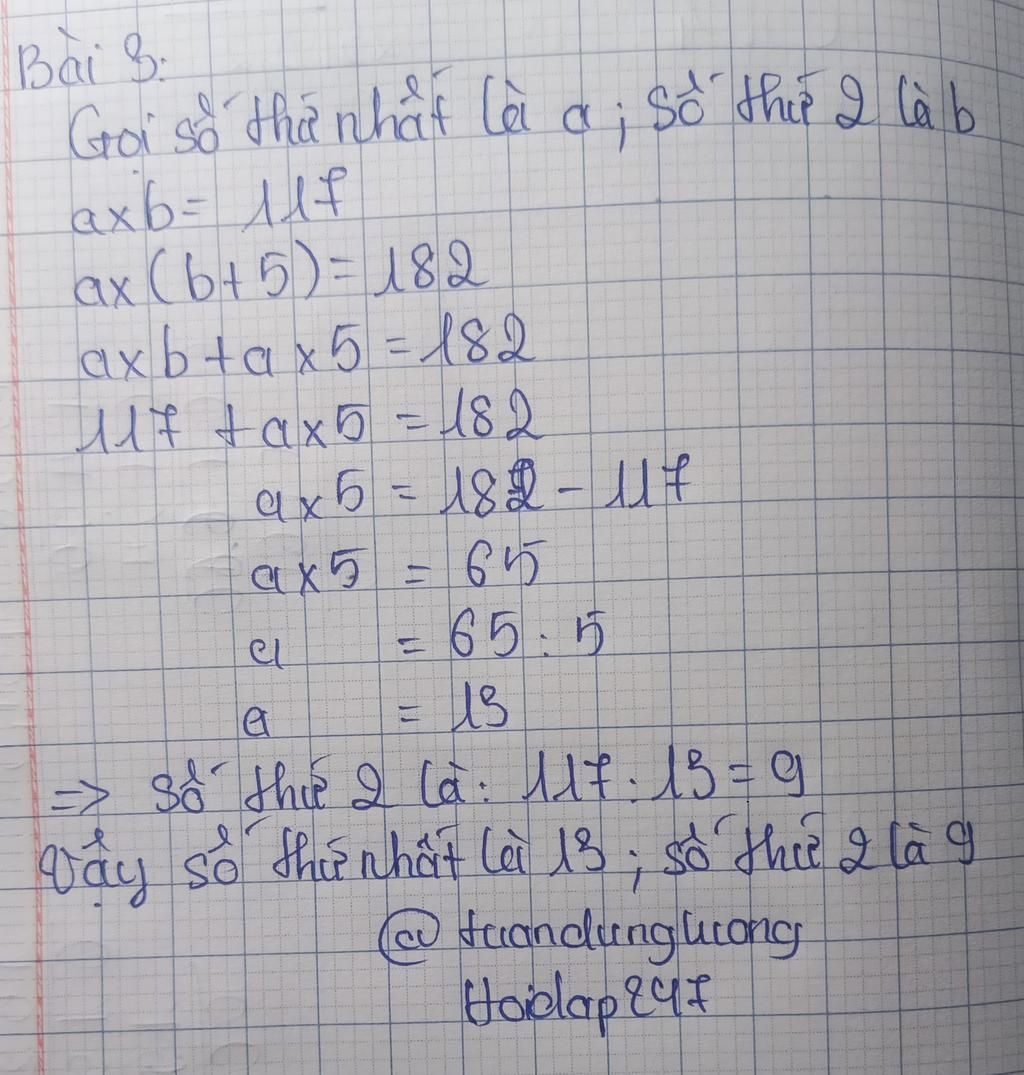 Bài 3:
Gọi số thứ nhất là a; số thứ 2 là b
axb= 117
ax(b+5)=182
axb+ax5=182
117+ax5=182
ax5=182-117
ax5=65
a=65:5
a=13
=> số thứ 2 là: 117:13=9
Vậy số thứ nhất là 13; số thứ 2 là 9
@tuandungluong
Hoidap247